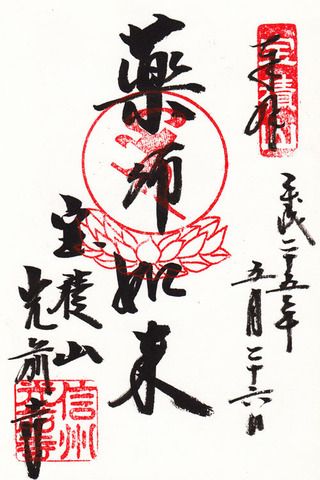 奉拝
宝積山
平成二十五年
五月二十六日
薬師如来
宝積山
光前寺
信州
光前寺